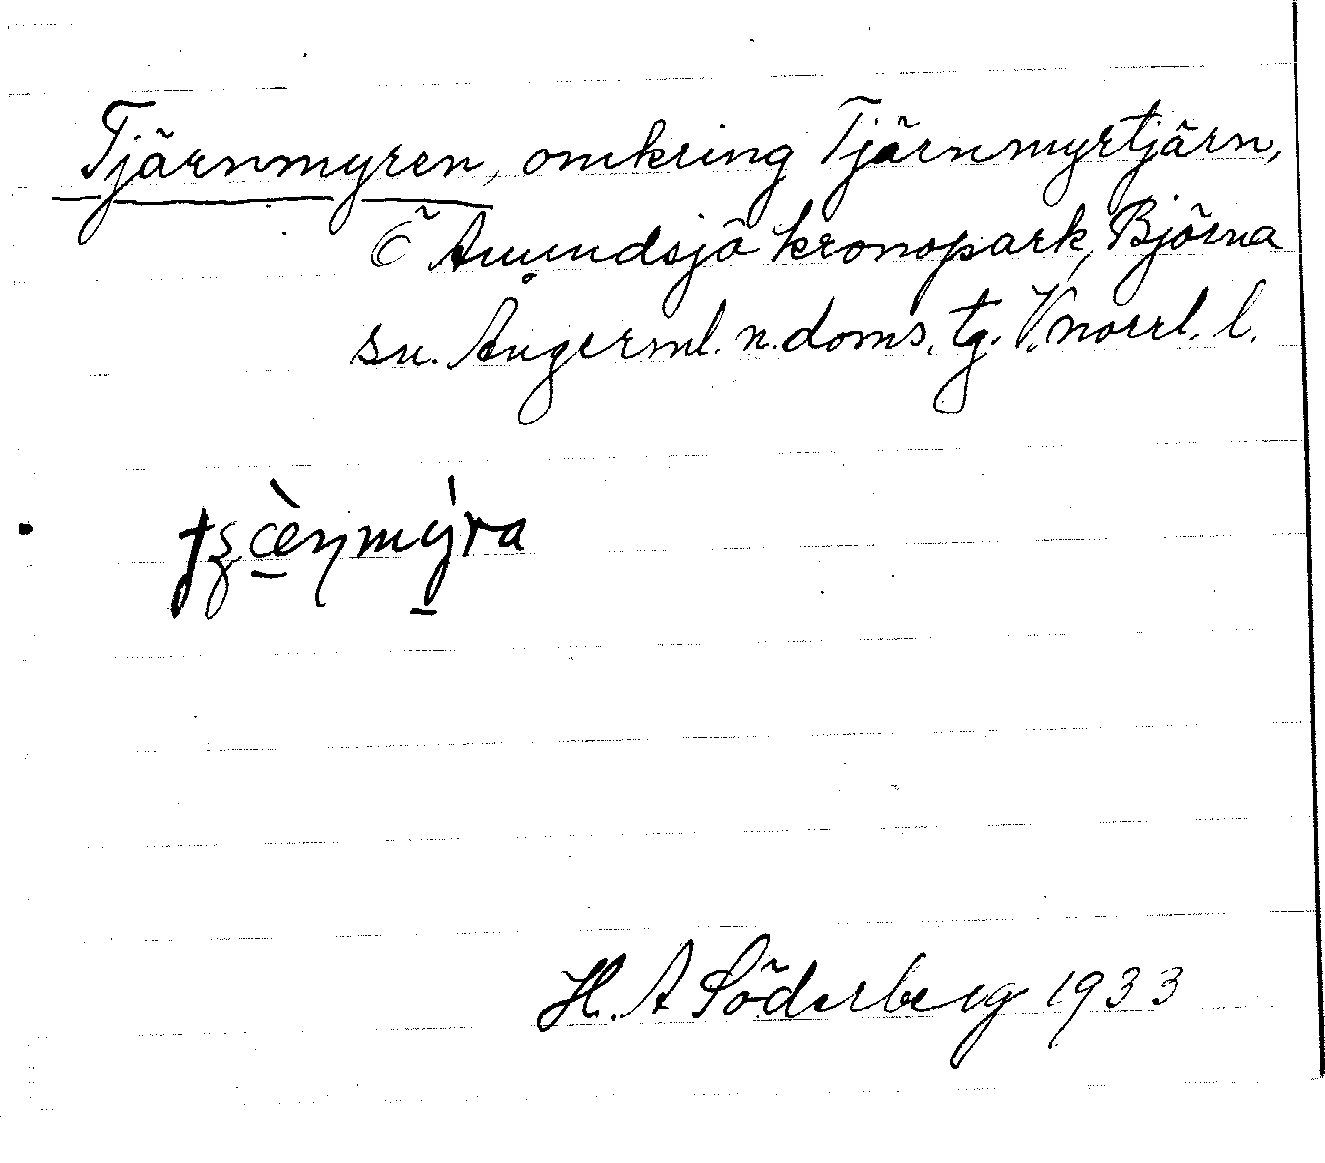 Tjärnmyren, omkring Tjärnmyrtjärn,
Ö Amundsjö kronopark, Björna
sn. Ångerml. n. doms. tg. V.norrl. l.
H. A Söderberg 1933